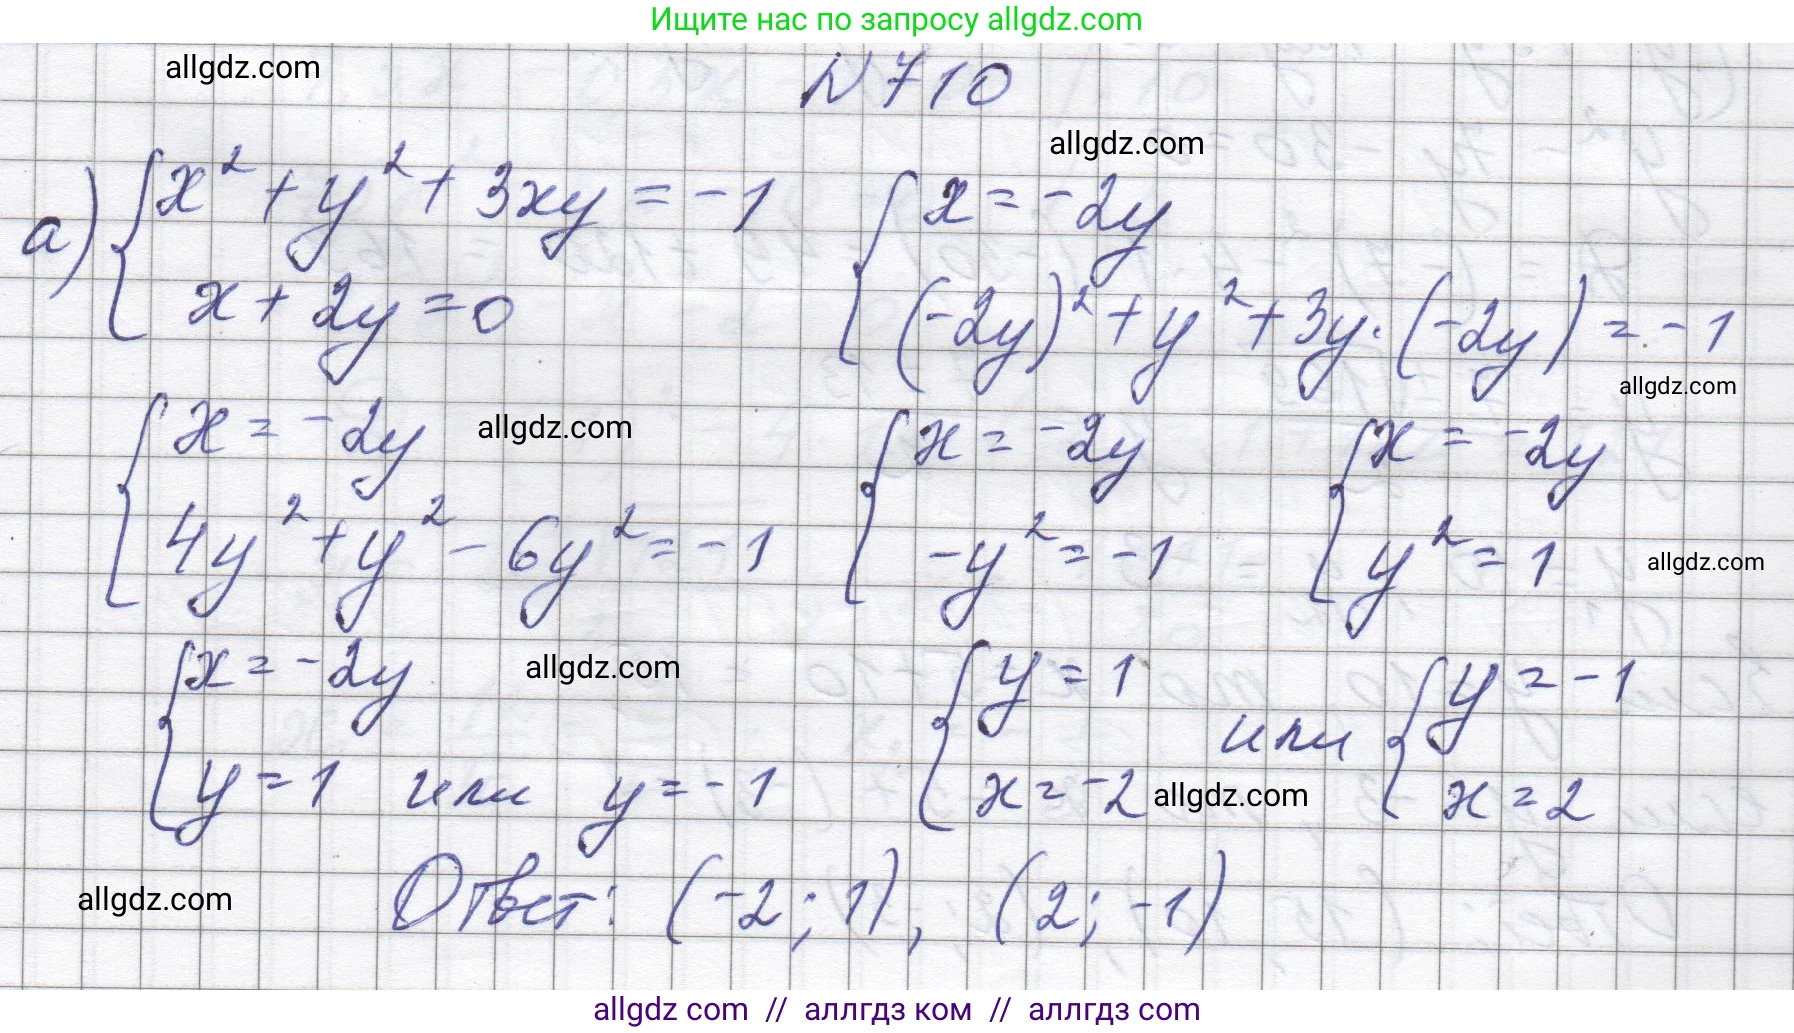 Ищите нас по запросу allgdz.com
allgdz.com
N 710
allgdz.com
а) { x² + y² + 3xy = -1
x + 2y = 0
{ x = -2y
(-2y)² + y² + 3y · (-2y) = -1
allgdz.com
{ x = -2y
4y² + y² - 6y² = -1
allgdz.com
{ x = -2y
-y² = -1
{ x = -2y
y² = 1
allgdz.com
{ x = -2y
y = 1 или y = -1
allgdz.com
{ y = 1
x = -2
или
{ y = -1
x = 2
allgdz.com
allgdz.com
Ответ: (-2; 1), (2; -1)
allgdz com // аллгдз ком // аллгдз com